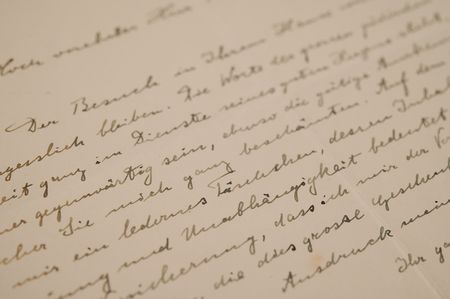 Hoch verehrter Herr
Der Besuch in Ihrem Hause
ngesslich bleiben. Die Worte des grossen
eit ganz im Dienste seines guten Regens steht,
mer gegenwärtig sein, ebenso die gütige
cher Sie mich ganz beschämten. Auf dem
mir ein ledernes Täschchen, dessen Inhal
ung und Unabhängigkeit bedeutet
sicherung, dass ich mir der Ver
die das grosse Geschen
Ausdruck mein
Ihr ga